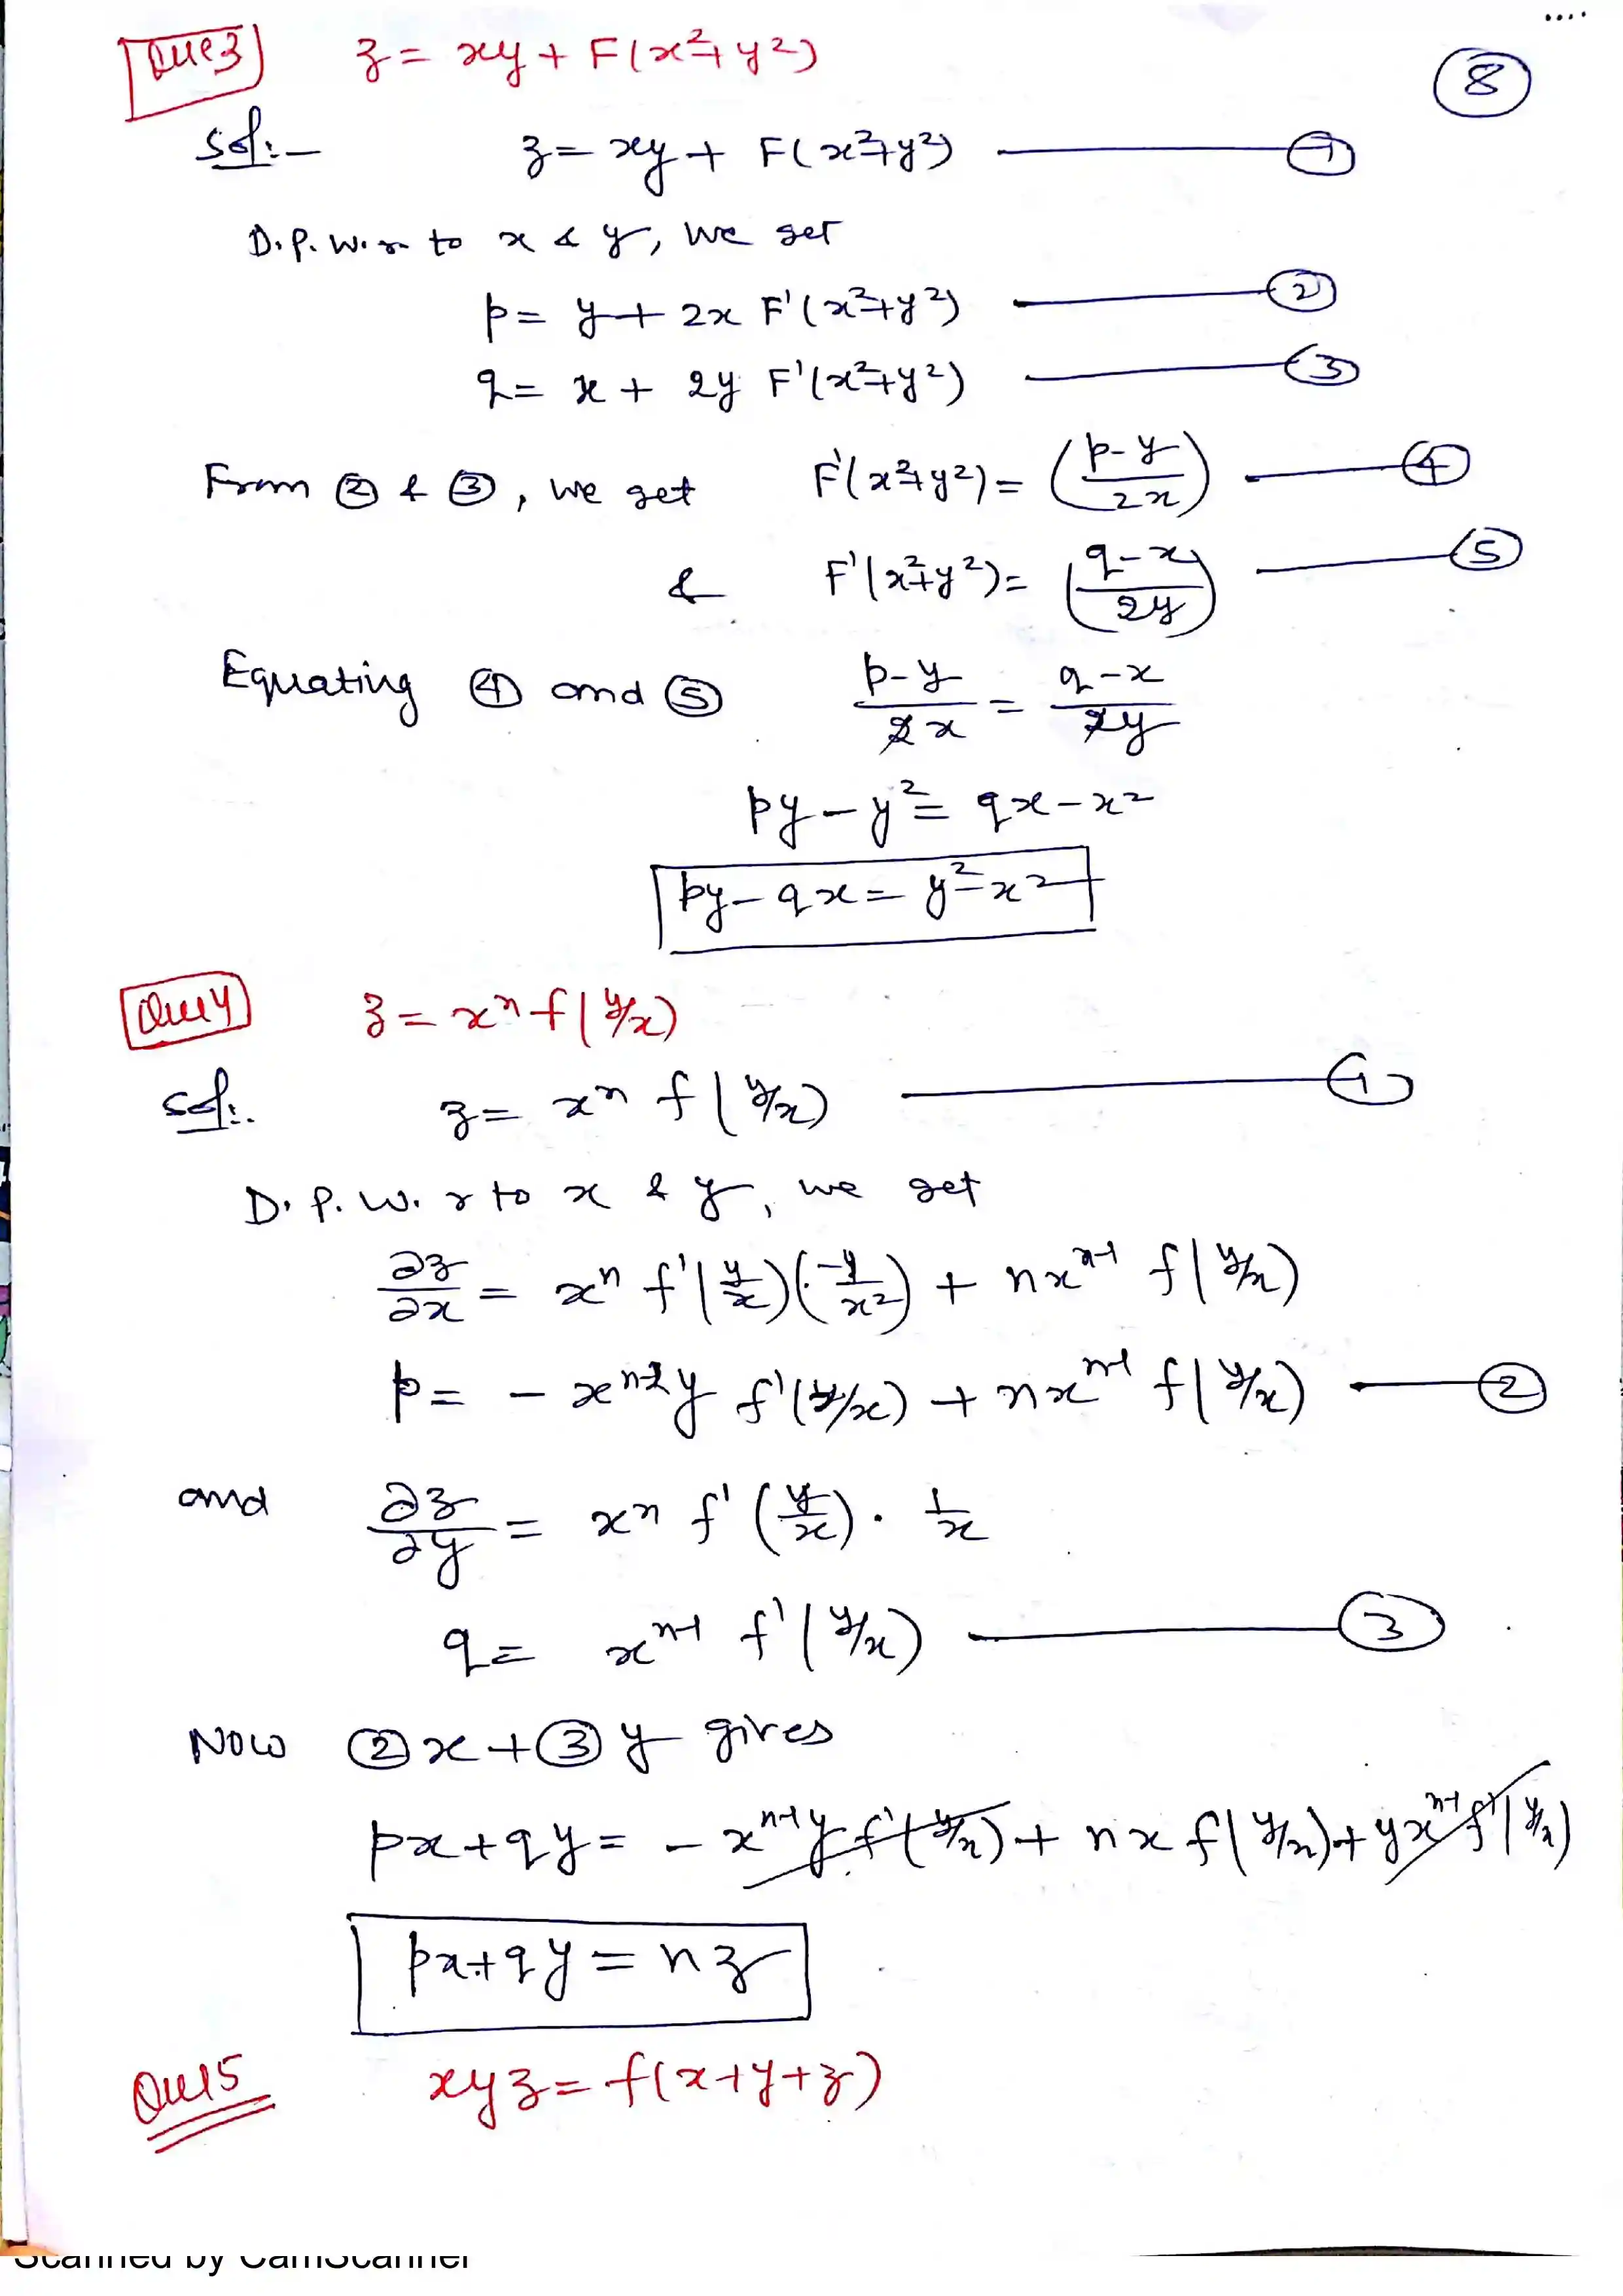 Que3 z = xy + F(x²+y²)
8
Sol:- z = xy + F(x²+y²) ——— 1
D.P.W.r to x & y, we get
p = y + 2x F'(x²+y²) ——— 2
q = x + 2y F'(x²+y²) ——— 3
From ② & ③, we get F'(x²+y²) = ((p-y)/2x) ——— 4
& F'(x²+y²) = ((q-x)/2y) ——— 5
Equating ④ and ⑤ (p-y)/2x = (q-x)/2y
py - y² = qx - x²
py - qx = y² - x²
Que4 z = xⁿ f(y/x)
Sol:- z = xⁿ f(y/x) ——— 1
D.P.W.r to x & y, we get
∂z/∂x = xⁿ f'(y/x)(-y/x²) + nxⁿ⁻¹ f(y/x)
p = - xⁿ⁻²y f'(y/x) + nxⁿ⁻¹ f(y/x) ——— 2
and ∂z/∂y = xⁿ f'(y/x) · 1/x
q = xⁿ⁻¹ f'(y/x) ——— 3
Now ②x + ③y gives
px + qy = - xⁿ⁻¹y f'(y/x) + nx f(y/x) + yxⁿ⁻¹ f'(y/x)
px + qy = nz
Que5 xyz = f(x+y+z)
Scanned by CamScanner